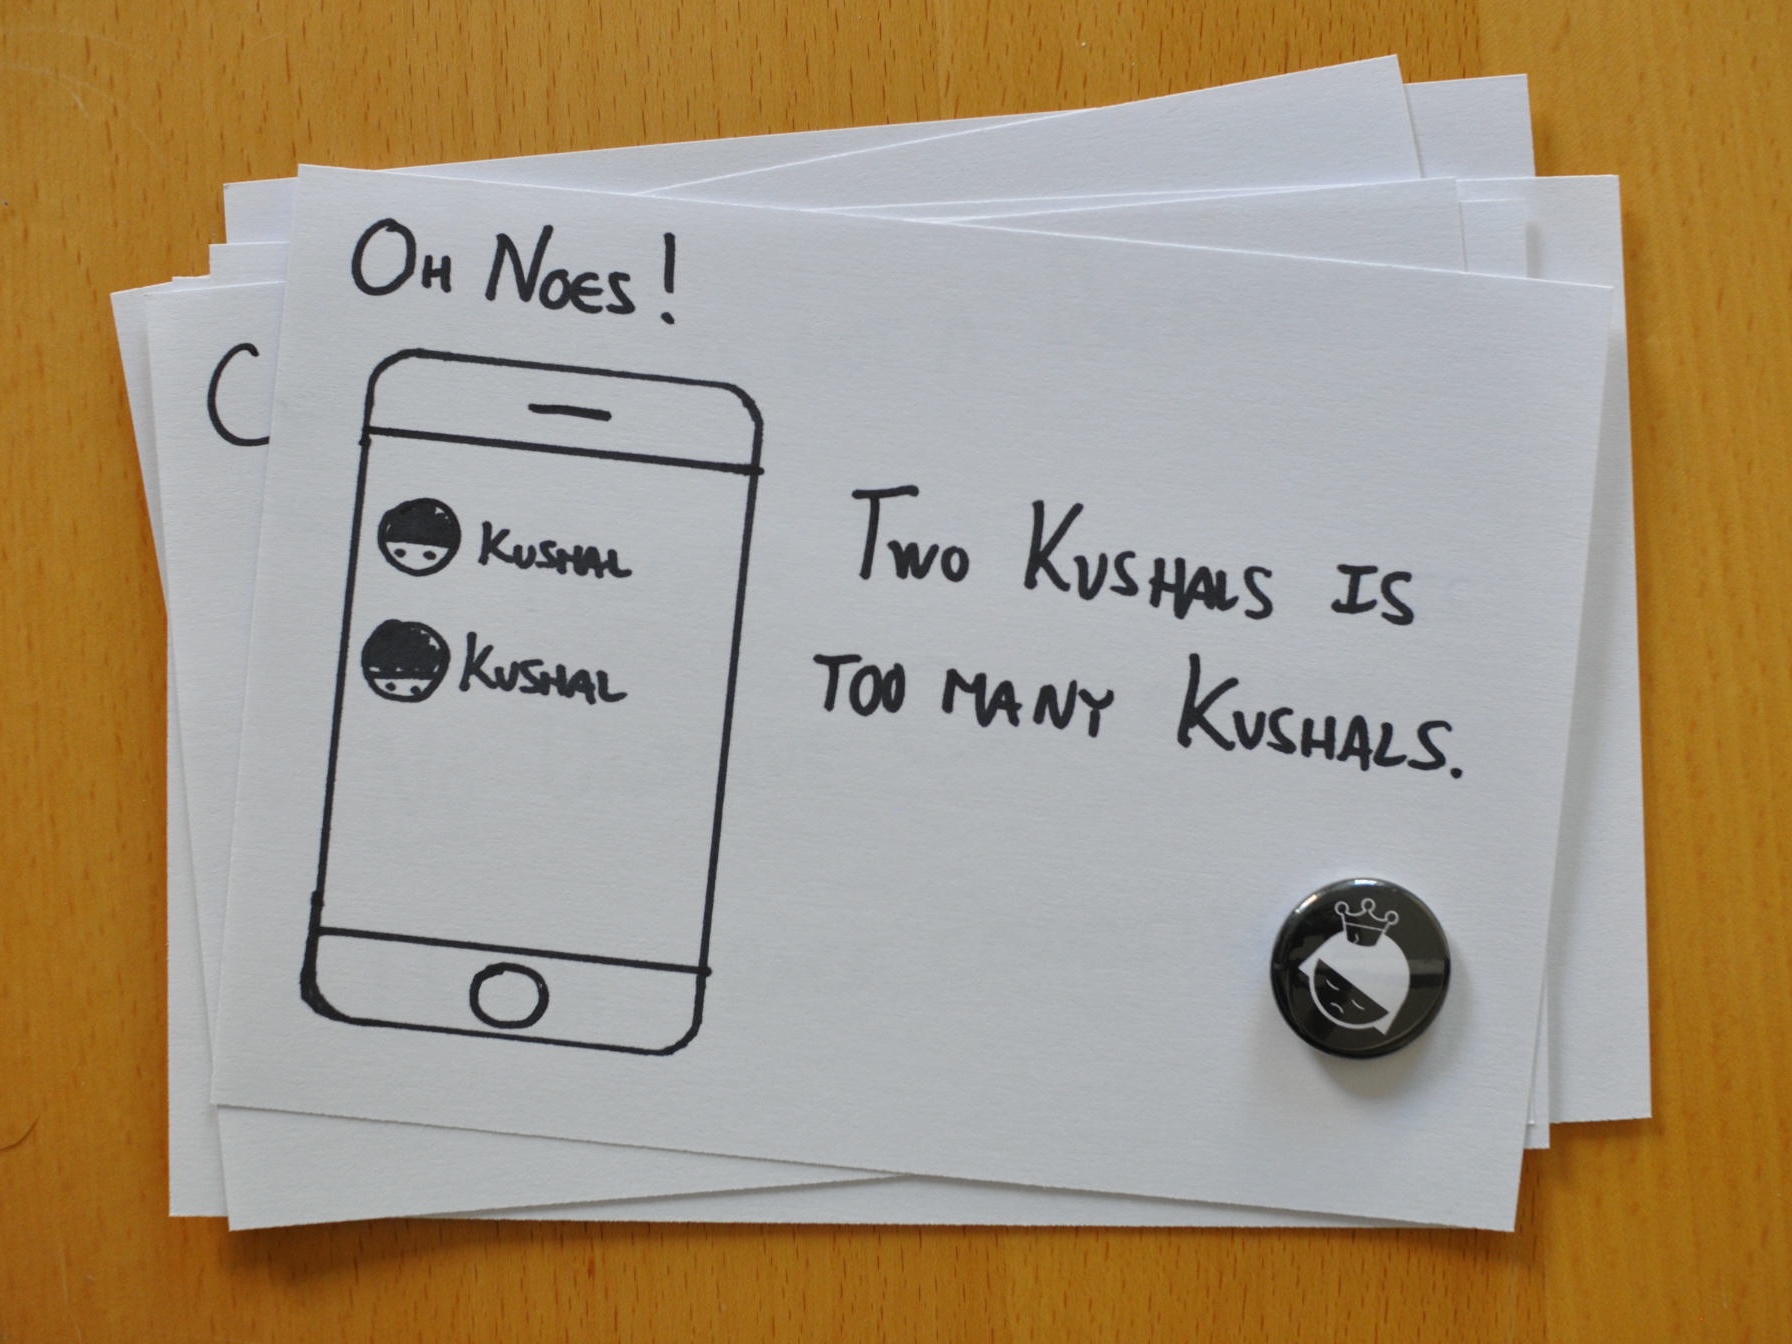 OH NOES!
KUSHAL
KUSHAL
TWO KUSHALS IS
TOO MANY KUSHALS.
C